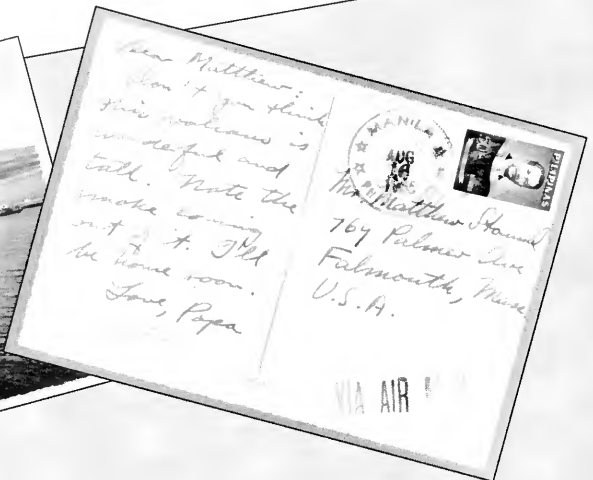 Dear Matthew:
Don't you think
this volcano is
wonderful and
tall. Note the
smoke coming
out of it. I'll
be home soon.
Love, Papa
MANILA
AUG
PILIPINAS
Mr. Matthew
769 Palmer Ave
Falmouth, Mass.
U.S.A.
VIA AIR